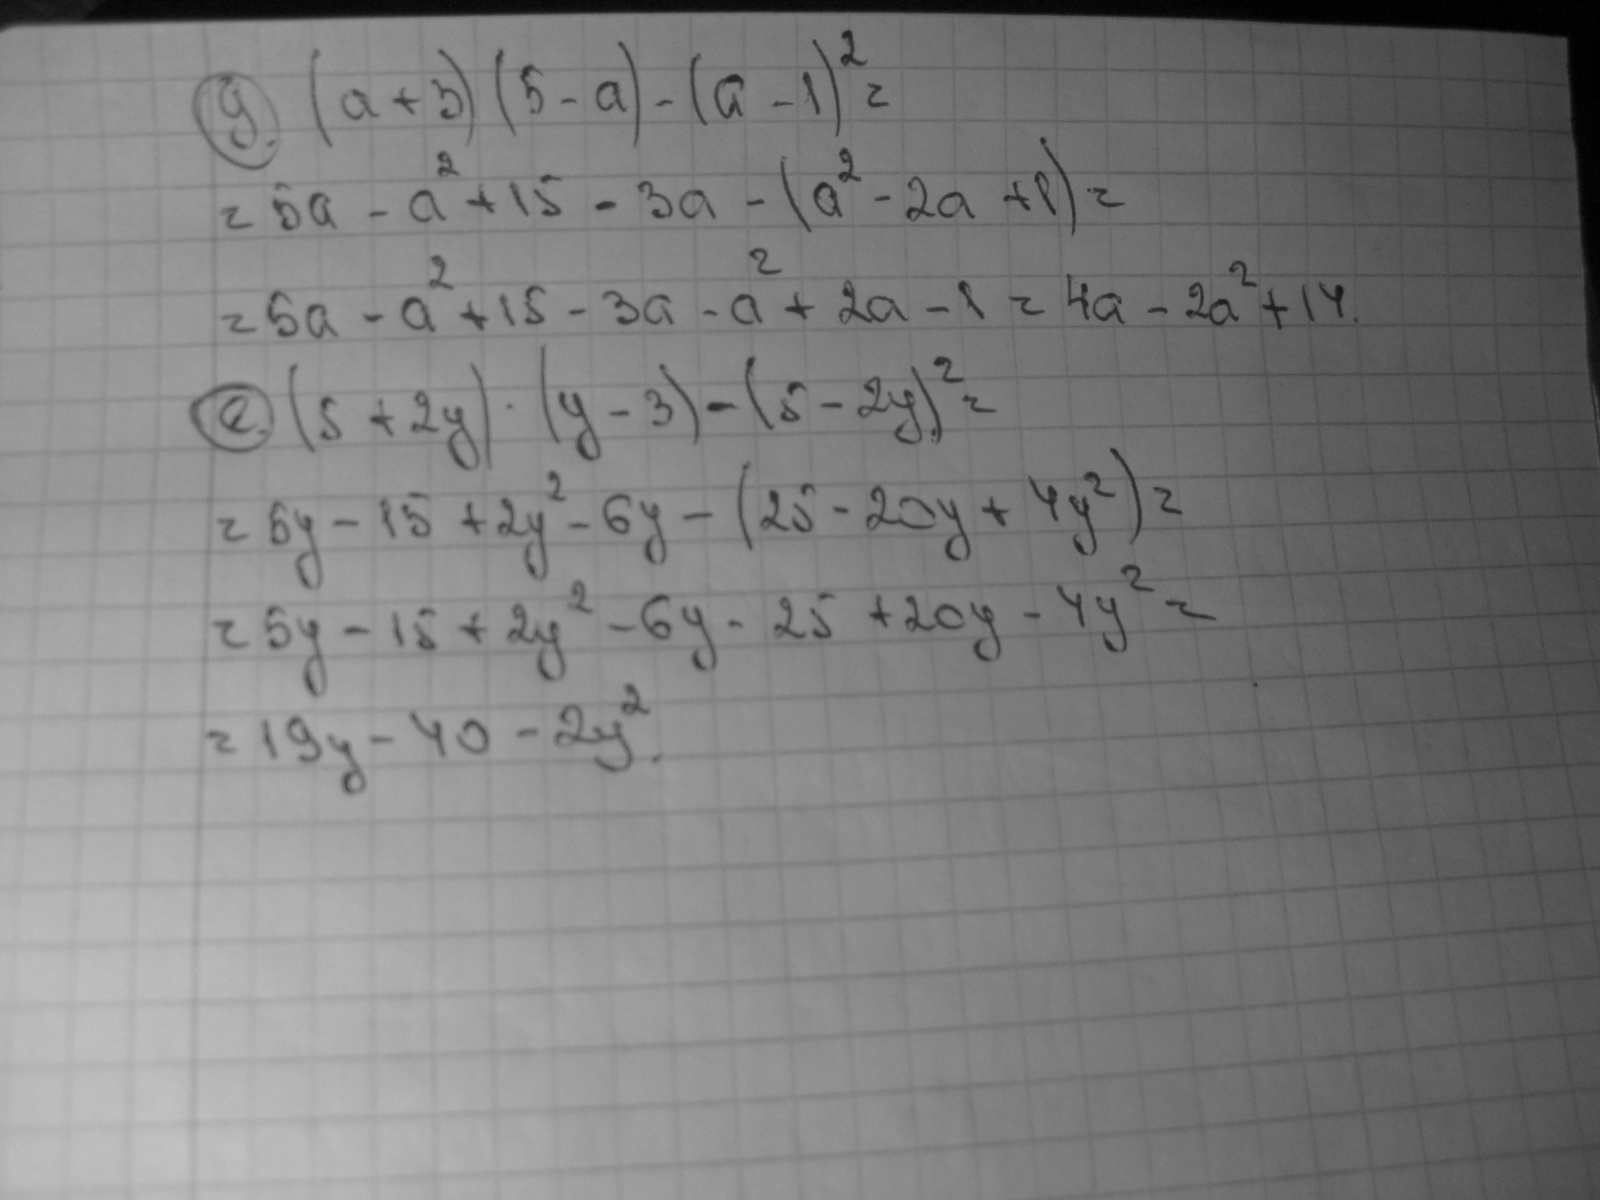 д. (a+3)(5-a)-(a-1)²=
=5a-a²+15-3a-(a²-2a+1)=
=5a-a²+15-3a-a²+2a-1=4a-2a²+14.
е. (5+2y)·(y-3)-(5-2y)²=
=5y-15+2y²-6y-(25-20y+4y²)=
=5y-15+2y²-6y-25+20y-4y²=
=19y-40-2y².